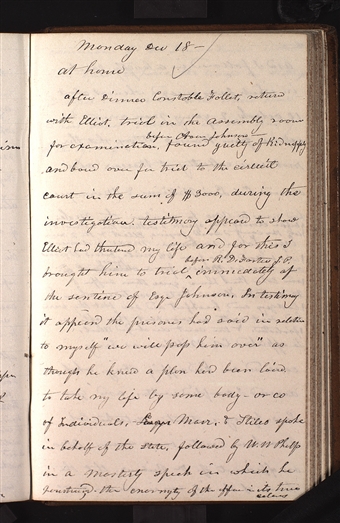 Monday Dec 18 —
at home
after Dinner Constable Follet, return
with Elliot, trial in the assembly room
before Aaron Johnson —
for examination, found guilty of Kidnapping
and bound over for trial to the circuit
court in the sum of $3000, during the
investigation. testimony appeard to show
Elliot had thretend my life and for this I
before R. D. Foster J.P.
brought him to trial immediately after
the sentince of Esqr Johnson, In testimony
it appeard the prisoner had said in relation
to myself "we will pop him over" as
though he knew a plan had been laid
to take my life by some body - or co
of Individuals, Messr. & Stiles spoke
in behalf of the state, followed by W. W. Phelps
in a masterly speech in which he
the enormity of the affair in its true
colors